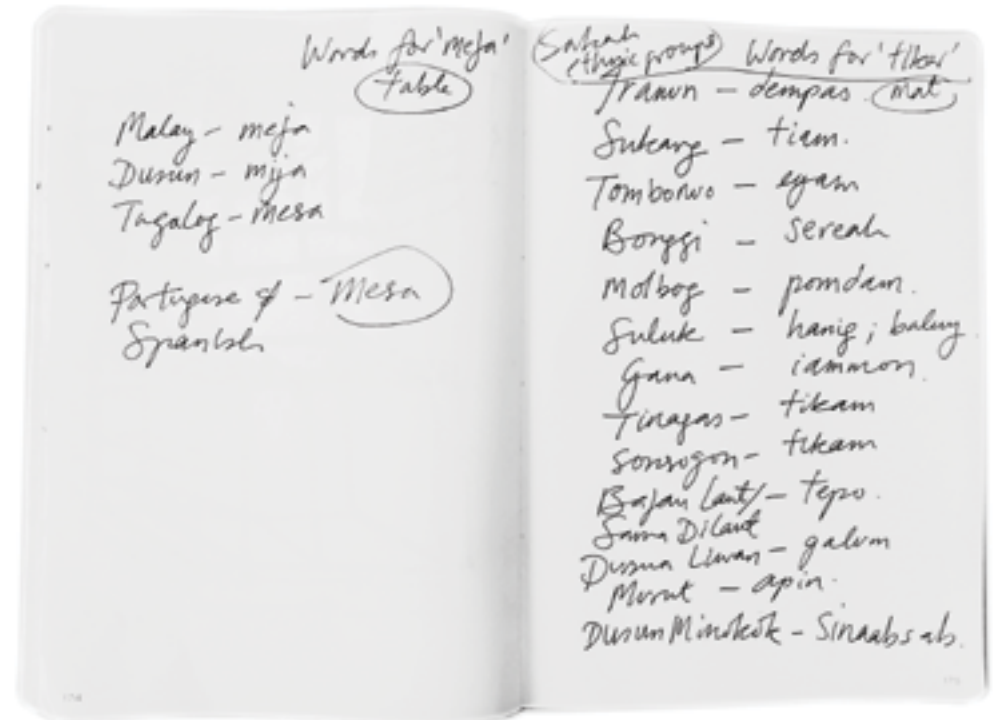 Words for 'meja'
table
Malay - meja
Dusun - mija
Tagalog - mesa
Portugese & - mesa
Spanish
(Sabah
ethnic groups)
Words for 'tikar'
Iranun - dempas
mat
Sukang - tiam.
Tombonuo - egam
Bonggi - sereah
Molbog - pomdam.
Suluk - hanig ; baluy
Gana - iammon.
Tinagas - tikam
Sonsogon - tikam
Bajau Laut/ - tepo.
Sama Dilaut
Dusun Liwan - galum
Murut - apin.
Dusun Minokok - Sinaabsab.